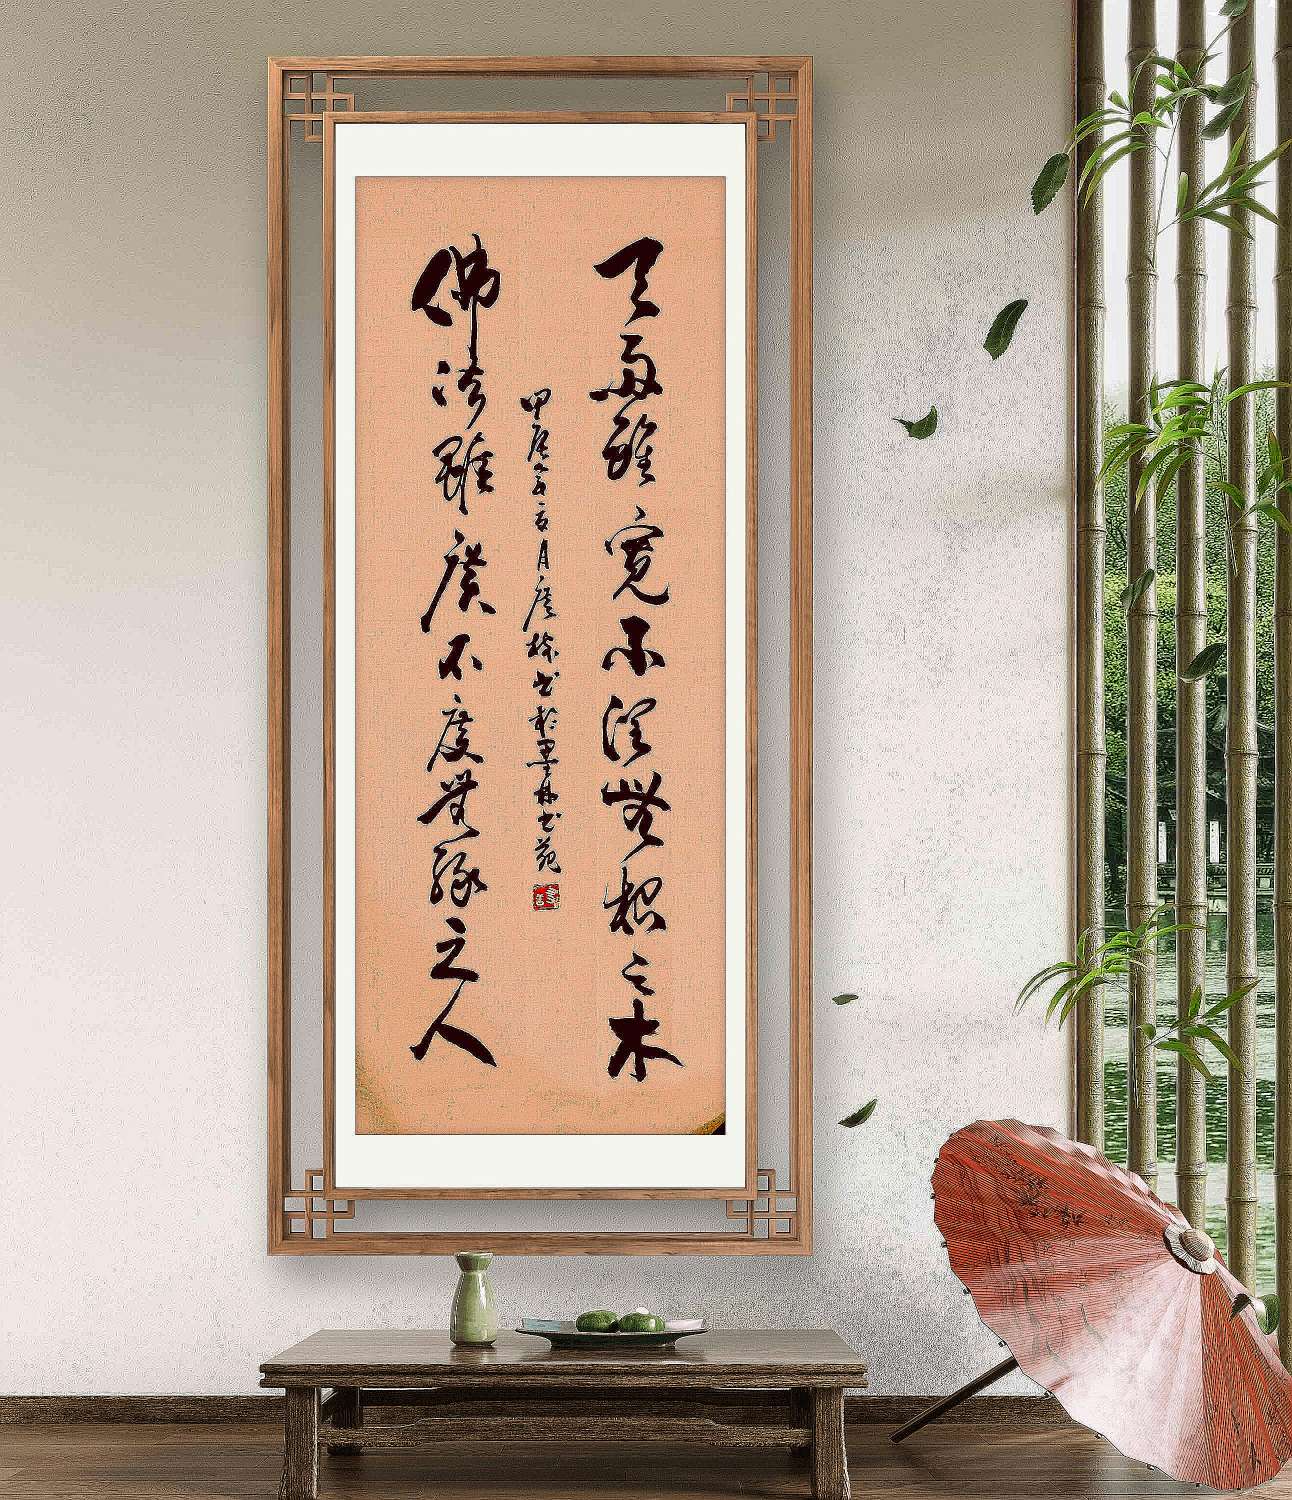 天雨雖寬不潤無根之木
甲辰年月书於墨林书苑
佛法雖廣不度無緣之人